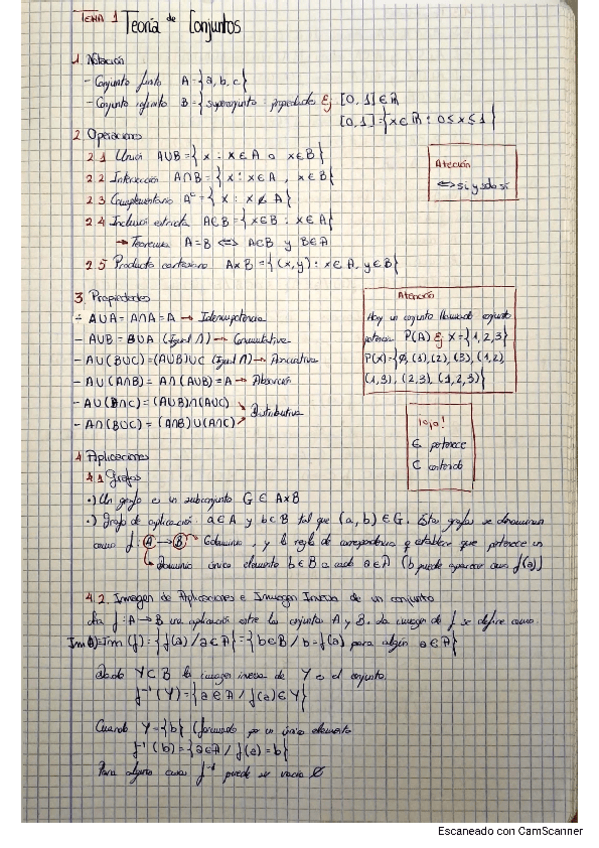 TEMA 1 Teoría de Conjuntos
1 Notación
- Conjunto finito A={a,b,c}
- Conjunto infinito B={ } Ej [0,1]∈ℝ
[0,1]={x∈ℝ : 0≤x≤1}
2 Operaciones
2.1 Unión A∪B={x : x∈A o x∈B}
2.2 Intersección A∩B={x : x∈A , x∈B}
2.3 Complementario Aᶜ={x : x∉A}
2.4 Inclusión estricta A∈B={x∈B : x∈A}
→ Teorema A=B ⟺ A∈B y B∈A
2.5 Producto cartesiano A×B={(x,y) : x∈A, y∈B}
Atención
⟺ si y solo si
3. Propiedades
- A∪A=A∩A=A → Idempotencia
- A∪B=B∪A (Igual ∩) → Conmutativa
- A∪(B∪C)=(A∪B)∪C (Igual ∩) → Asociativa
- A∪(A∩B)=A∩(A∪B)=A → Absorción
- A∪(B∩C)=(A∪B)∩(A∪C)
- A∩(B∪C)=(A∩B)∪(A∩C)
Distributiva
Atención
Hay un conjunto llamado conjunto
potencia P(A) Ej X={1,2,3}
P(X)={∅,(1),(2),(3),(1,2),
(1,3),(2,3),(1,2,3)}
¡ojo!
∈ pertenece
⊂ contenido
4 Aplicaciones
4.1 Grafos
·) Un grafo es un subconjunto G∈A×B
·) Grafo de aplicación: a∈A y b∈B tal que (a,b)∈G. Estos grafos se denominan
como f: A → B → Codominio, y la regla de correspondencia q establece que pertenece un
→ dominio único elemento b∈B a cada a∈A (b puede aparecer como f(a))
4.2. Imagen de Aplicaciones e Imagen Inversa de un conjunto
Sea f: A→B una aplicación entre los conjuntos A y B. La imagen de f se define como
Im(f)={f(a)/a∈A}={b∈B/b=f(a) para algún a∈A}
Dado Y⊂B la imagen inversa de Y es el conjunto
f⁻¹(Y)={a∈A / f(a)∈Y}
Cuando Y={b} (formado por un único elemento
f⁻¹(b)={a∈A / f(a)=b}
Para algunos casos f⁻¹ puede ser vacío ∅
Escaneado con CamScanner